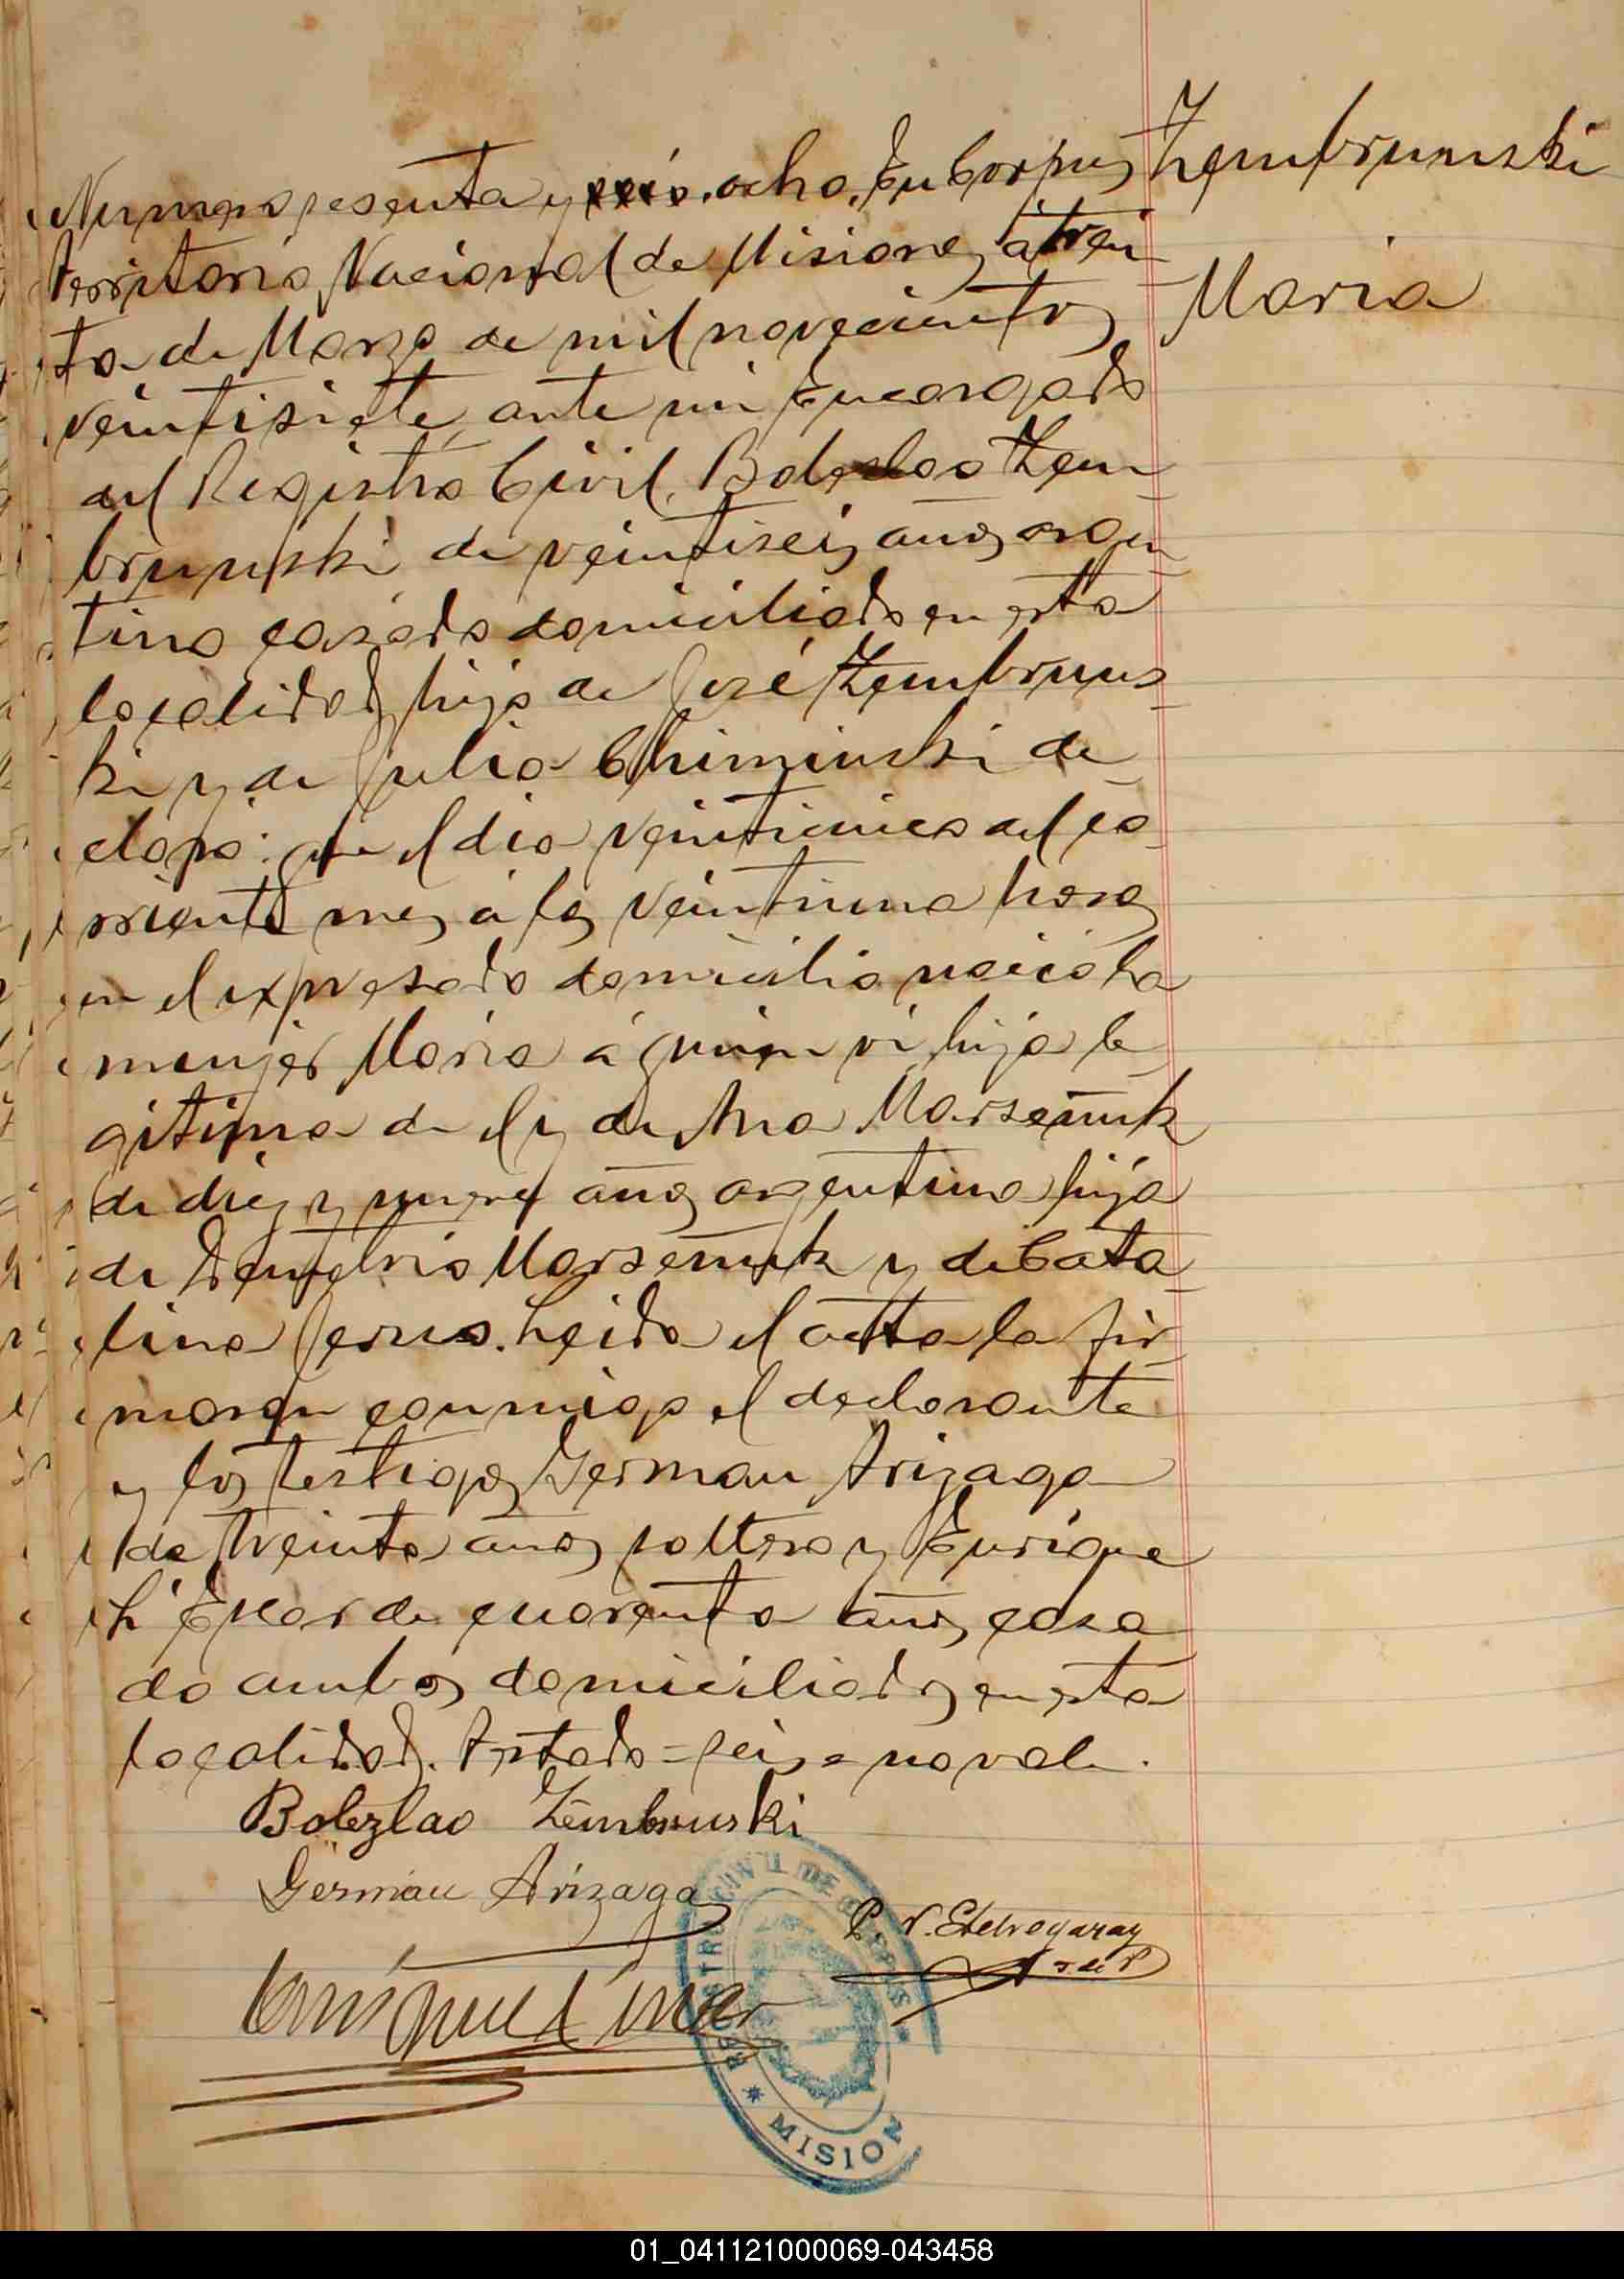 Numero sesenta y seis. ocho. En Corpus
Territorio Nacional de Misiones, a trein
ta de Marzo de mil novecientos
veintisiete, ante mi Encargado
del Registro Civil, Boleslao Zem
brunski de veintiseis años argen
tino casado domiciliado en esta
localidad, hijo de José Zembruns
ki y de Julia Chiminski de
claró: que el dia veinticinco del co
rriente mes á las veintiuna horas
en el expresado domicilio nació la
mujer Maria á quien vi hija le
gitima de el y de Ana Marseniuk
de diez y nueve años argentina hija
de Demetrio Marseniuk y de Cata
lina Jerus. Leida el acta la fir
maron conmigo el declarante
y los testigos German Arizaga
de treinta años soltero y Enrique
de cuarenta años, casa
do ambos domiciliados en esta
localidad. Testado = seis = no vale.
Zembrunski
Maria
Bolezlao Zembruski
German Arizaga
P. V. Etchegaray
J. de P
Enrique
REGISTRO CIVIL DE CORPUS
* MISION
01_041121000069-043458